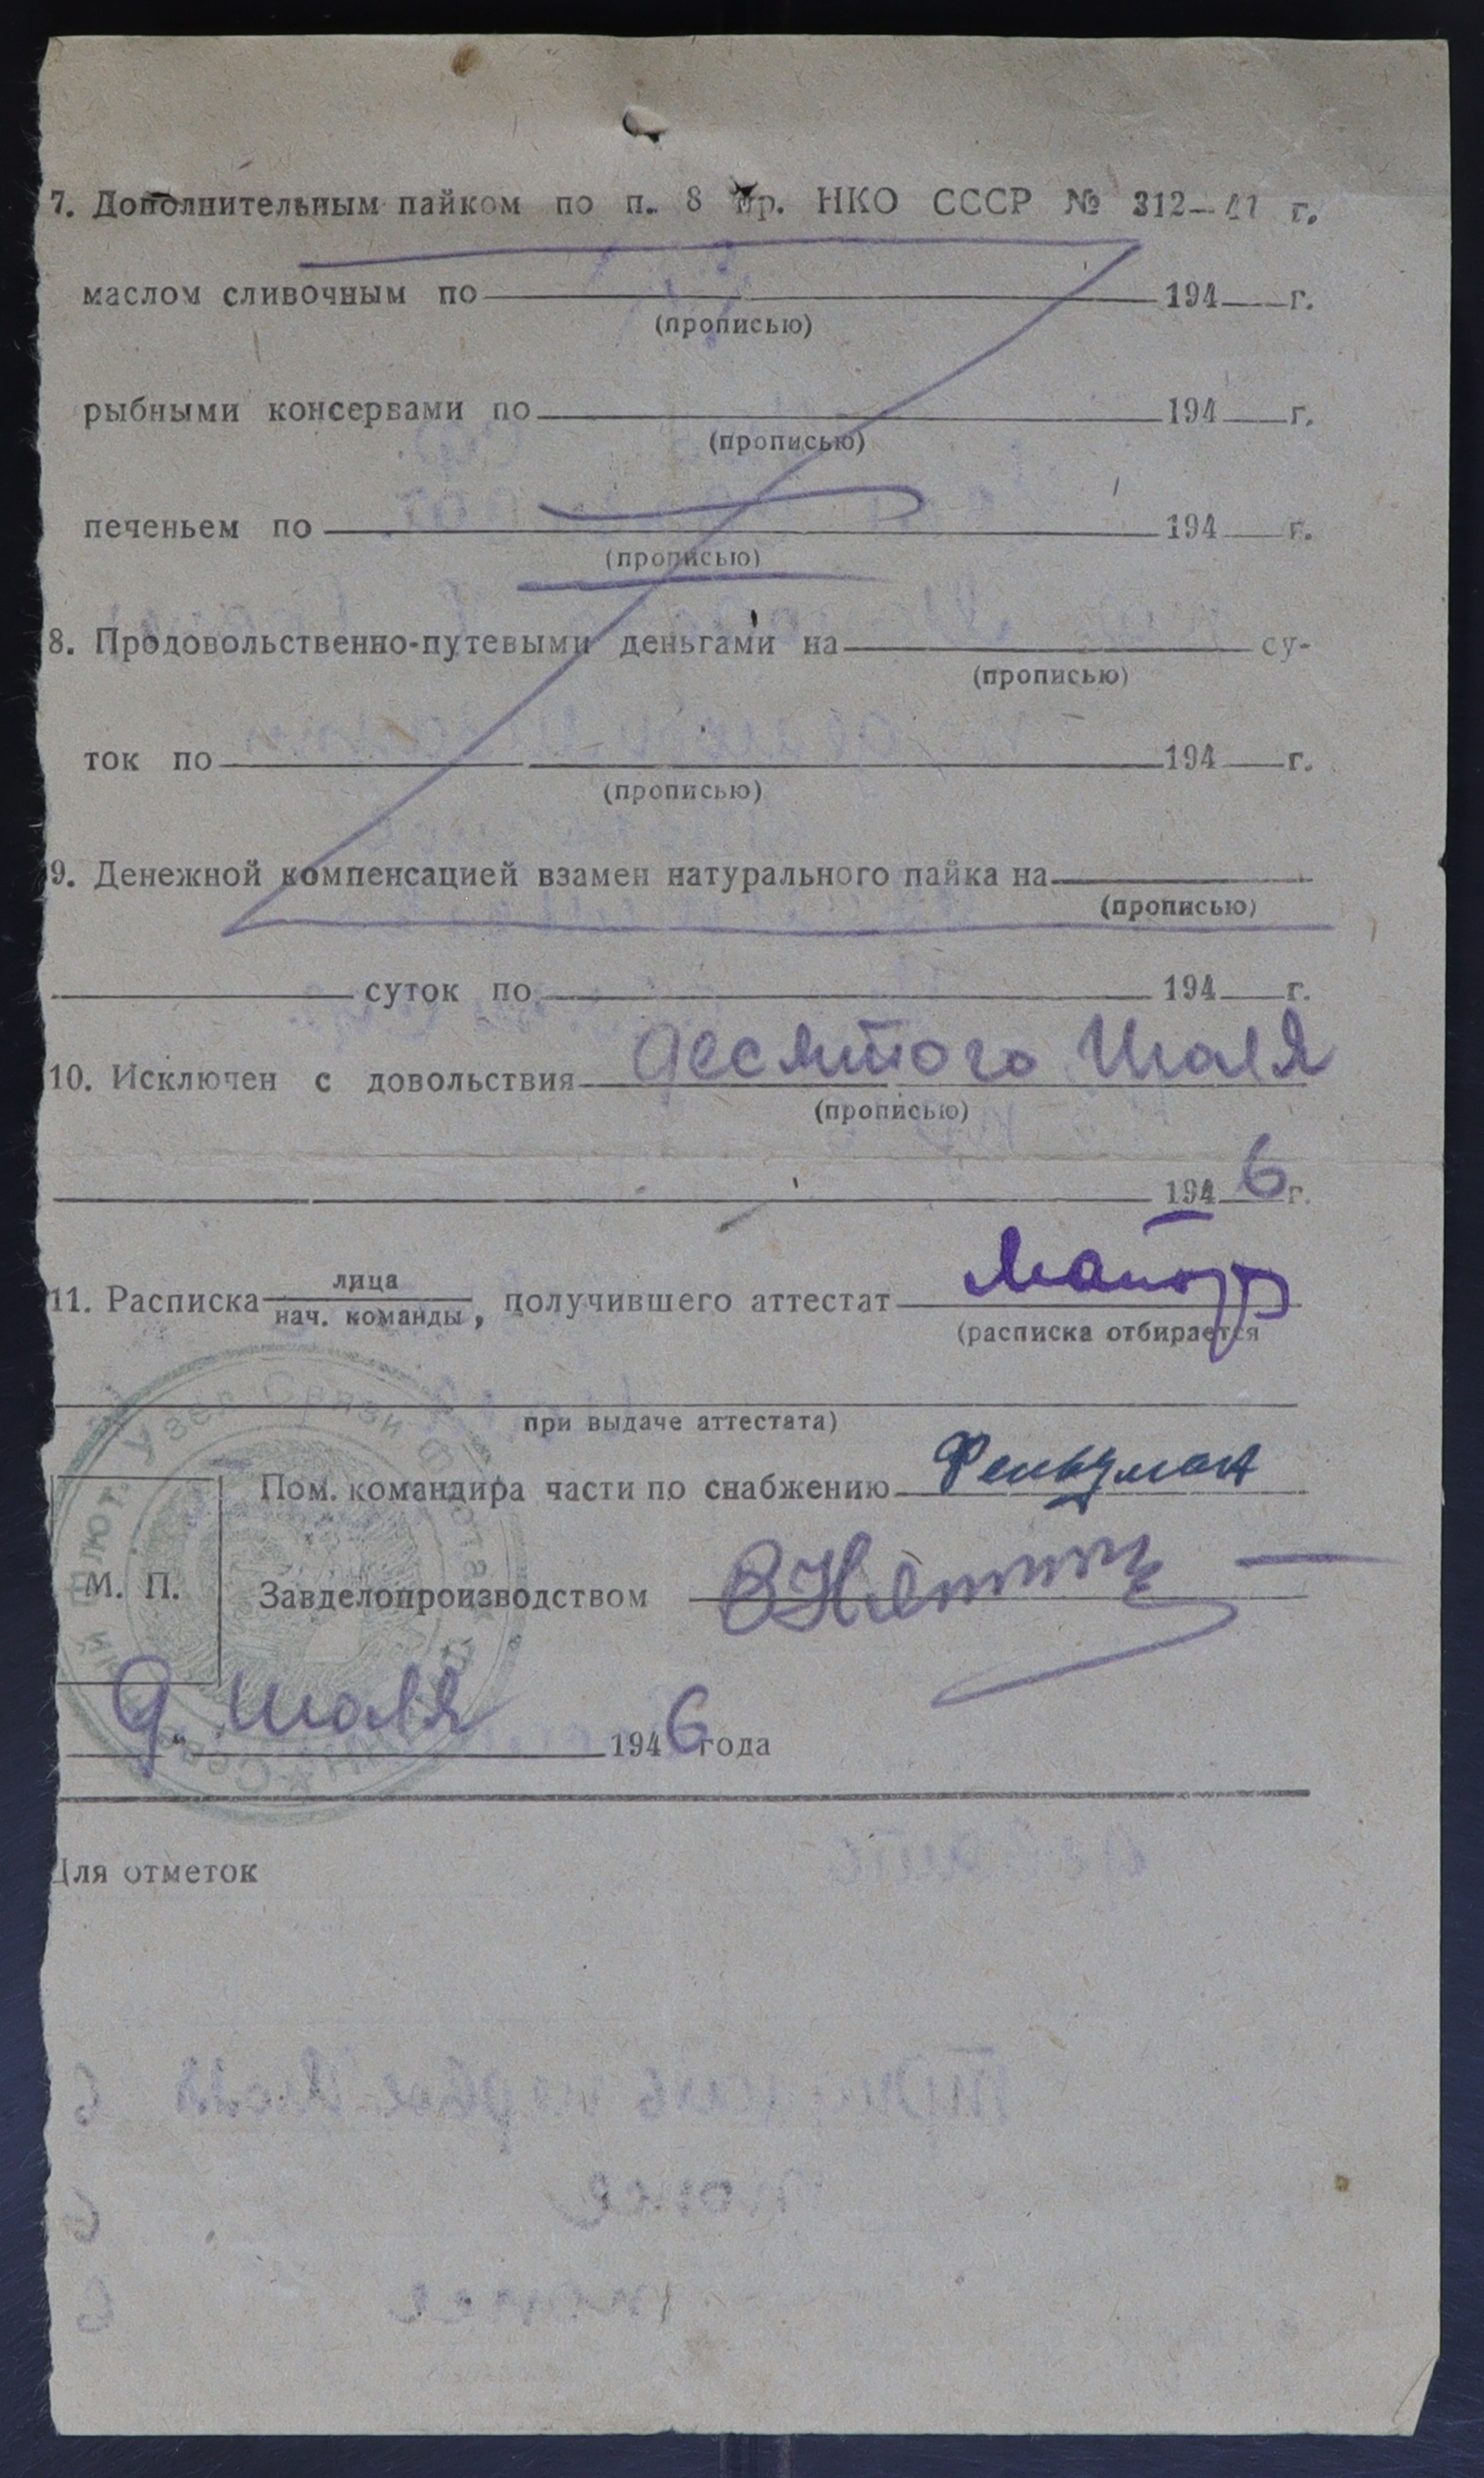 7. Дополнительным пайком по п. 8 пр. НКО СССР № 312—41 г.
маслом сливочным по 194 г.
(прописью)
рыбными консервами по 194 г.
(прописью)
печеньем по 194 г.
(прописью)
8. Продовольственно-путевыми деньгами на су-
(прописью)
ток по 194 г.
(прописью)
9. Денежной компенсацией взамен натурального пайка на
(прописью)
суток по 194 г.
10. Исключен с довольствия десятого Июля
(прописью)
1946 г.
11. Расписка лица
нач. команды, получившего аттестат Майор
(расписка отбирается
при выдаче аттестата)
Пом. командира части по снабжению
М. П.
Завделопроизводством
9 " июля 1946 года
Узел Связи
Для отметок